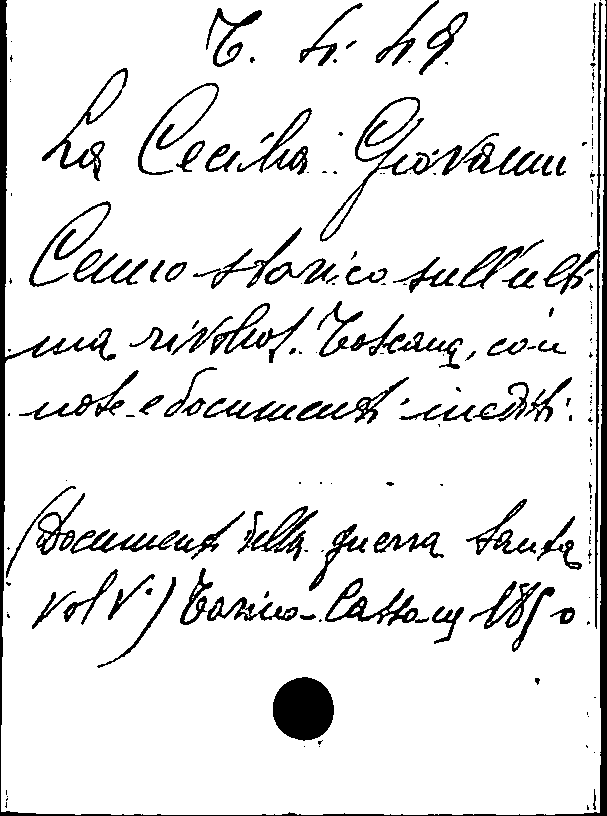 La Cecilia Giovanni
Cenno storico sull'ulti
ma rivoluz. Toscana, con
note e documenti inediti.
(Documenti della guerra santa
vol V.) Torino-Cassone 1850